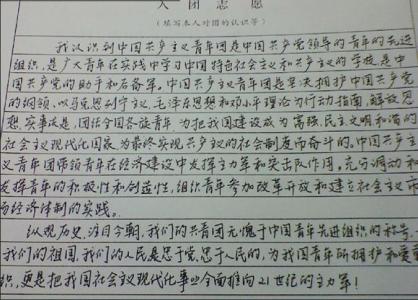 入团志愿
(填写本人对团的认识等)
我认识到中国共产主义青年团是中国共产党领导的青年的先进
组织,是广大青年在实践中学习中国特色社会主义和共产主义的学校,是中
国共产党的助手和后备军。中国共产主义青年团坚决拥护中国共产党
的纲领,以马克思列宁主义,毛泽东思想和邓小平理论为行动指南,解放思
想,实事求是,团结全国各族青年,为把我国建设成为富强,民主,文明和谐的
社会主义现代化国家,为最终实现共产主义的社会制度而奋斗的。中国共产主
义青年团带领青年在经济建设中发挥主力军和突击队作用。充分调动和
发挥青年的积极性和创造性,组织青年参加改革开放和建立社会主义市
场经济体制的实践。
纵观历史,注目今朝,我们的共青团无愧于中国青年先进组织的称号。
我们的祖国,我们的人民是忠于党,忠于人民的,为我国青年所拥护和爱戴
织,更是把我国社会主义现代化事业全面推向21世纪的主力军!